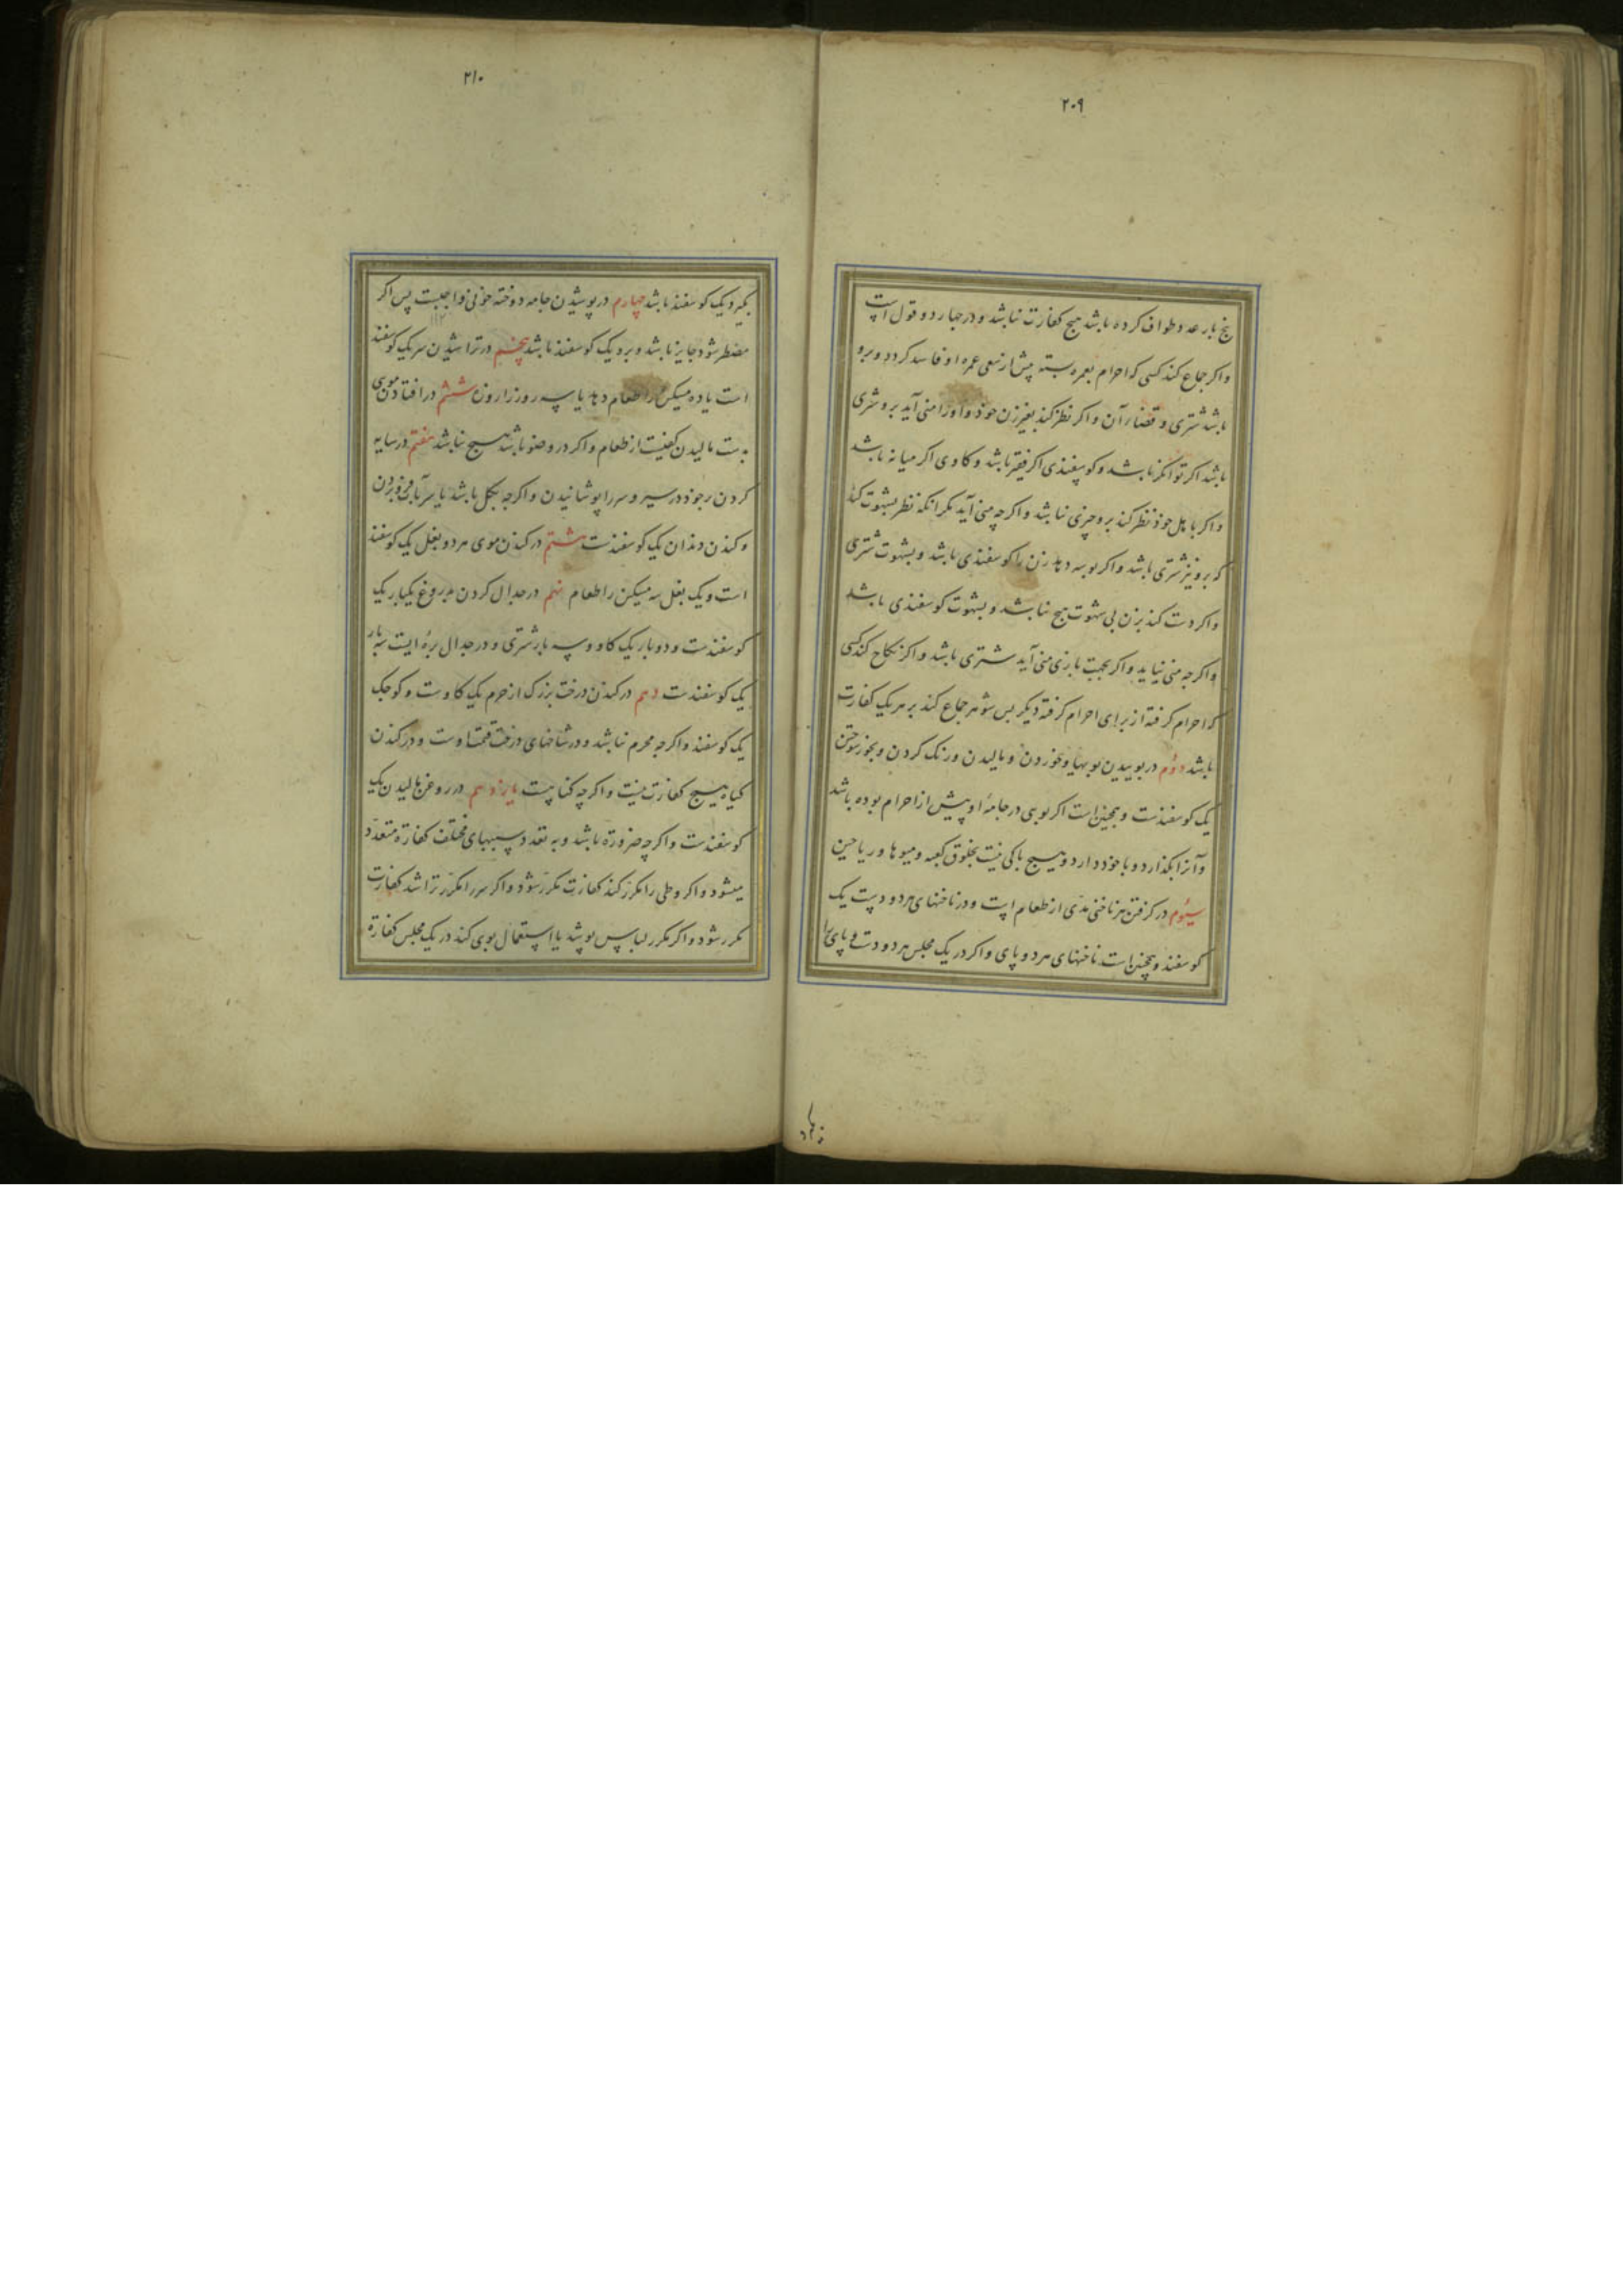 ۲۰۹
پنج بار عدد طواف کرده باشد هیچ کفارت نباشد و در چهار دو قول است
واکر جماع کند کسی که احرام بعمره بسته پیش از سعی عمره او فاسد کردد و برو
باشد شتری و قضاء آن واکر نظر کند بغیر زن خوذ و اورا منی آید برو شتری
باشد اکر توانکر باشد و کوسفندی اکر فقیر باشد و کاوی اکر میانه باشد
واکر باهل خوذ نظر کند برو چیزی نباشد واکرچه منی آید مکر انکه نظر بشهوت کند
که برو نیز شتری باشد واکر بوسه دهد زن را کوسفندی باشد و بشهوت شتری
واکر دست کند بزن بی شهوت هیچ نباشد و بشهوت کوسفندی باشد
واکرچه منی نیاید واکر بجهت بازی منی آید شتری باشد واکر نکاح کند کسی
که احرام کرفته از برای احرام کرفته دیکر پس شوهر جماع کند بر هر یک کفارت
باشد دوم در بوییدن بویها و خوردن و مالیدن و رنک کردن و بخور سوختن
یک کوسفندست و همچنین است اکر بوی در جامه او پیش از احرام بوده باشد
و آنرا بکذارد و با خود دارد و هیچ باکی نیست بخلوق کعبه و میوها و ریاحین
سیوم در کرفتن هر ناخنی مدّی از طعام است و در ناخنهای هر دو دست یک
کوسفند و همچنین است ناخنهای هر دو پای واکر در یک مجلس هر دو دست و پای را
۲۱۰
بکیرد یک کوسفند باشد چهارم در پوشیدن جامه دوخته خونی واجبست پس اکر
مضطر شود جایز باشد و برو یک کوسفند باشد پنجم در تراشیدن سر یک کوسفند
است یا ده مسکین را طعام دهد یا سه روز دارد روزه ششم در افتادن موی
بدست مالیدن کفیست از طعام واکر در وضو باشد هیچ نباشد هفتم در سایه
کردن بر خوذ در سیر و سر را پوشانیدن واکرچه بکل باشد یا سر بآب فرو بردن
و کندن دندان یک کوسفندست هشتم در کندن موی هر دو بغل یک کوسفند
است و یک بغل سه مسکین را طعام نهم در جدال کردن بدروغ یکبار یک
کوسفندست و دو بار یک کاو و سه بار شتری و در جدال براست سه بار
یک کوسفندست دهم در کندن درخت بزرک از حرم یک کاوست و کوچک
یک کوسفند واکرچه محرم نباشد و در شاخهای درخت قیمت اوست و در کندن
کیاه هیچ کفارت نیست واکرچه کناهست یازدهم در روغن مالیدن یک
کوسفندست واکرچه ضرورة باشد و به تعدد سببهای مختلف کفارة متعدّد
میشود واکر وطی را مکرر کند کفارت مکرّر شود واکر سر را مکرّر تراشد کفارت
مکرر شود واکر مکرر لباس پوشد یا استعمال بوی کند در یک مجلس کفارة